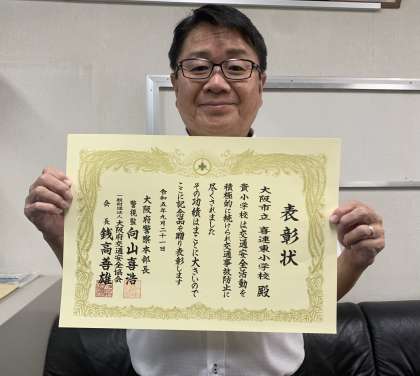 表彰状
大阪市立 喜連東小学校 殿
貴小学校は交通安全活動を
積極的に続けられ交通事故防止に
尽くされました
その功績はまことに大きいので
ここに記念品を贈り表彰します
令和五年九月二十一日
大阪府警察本部長
警視監 向山喜浩
一般財団法人 大阪府交通安全協会
会長 銭高善雄